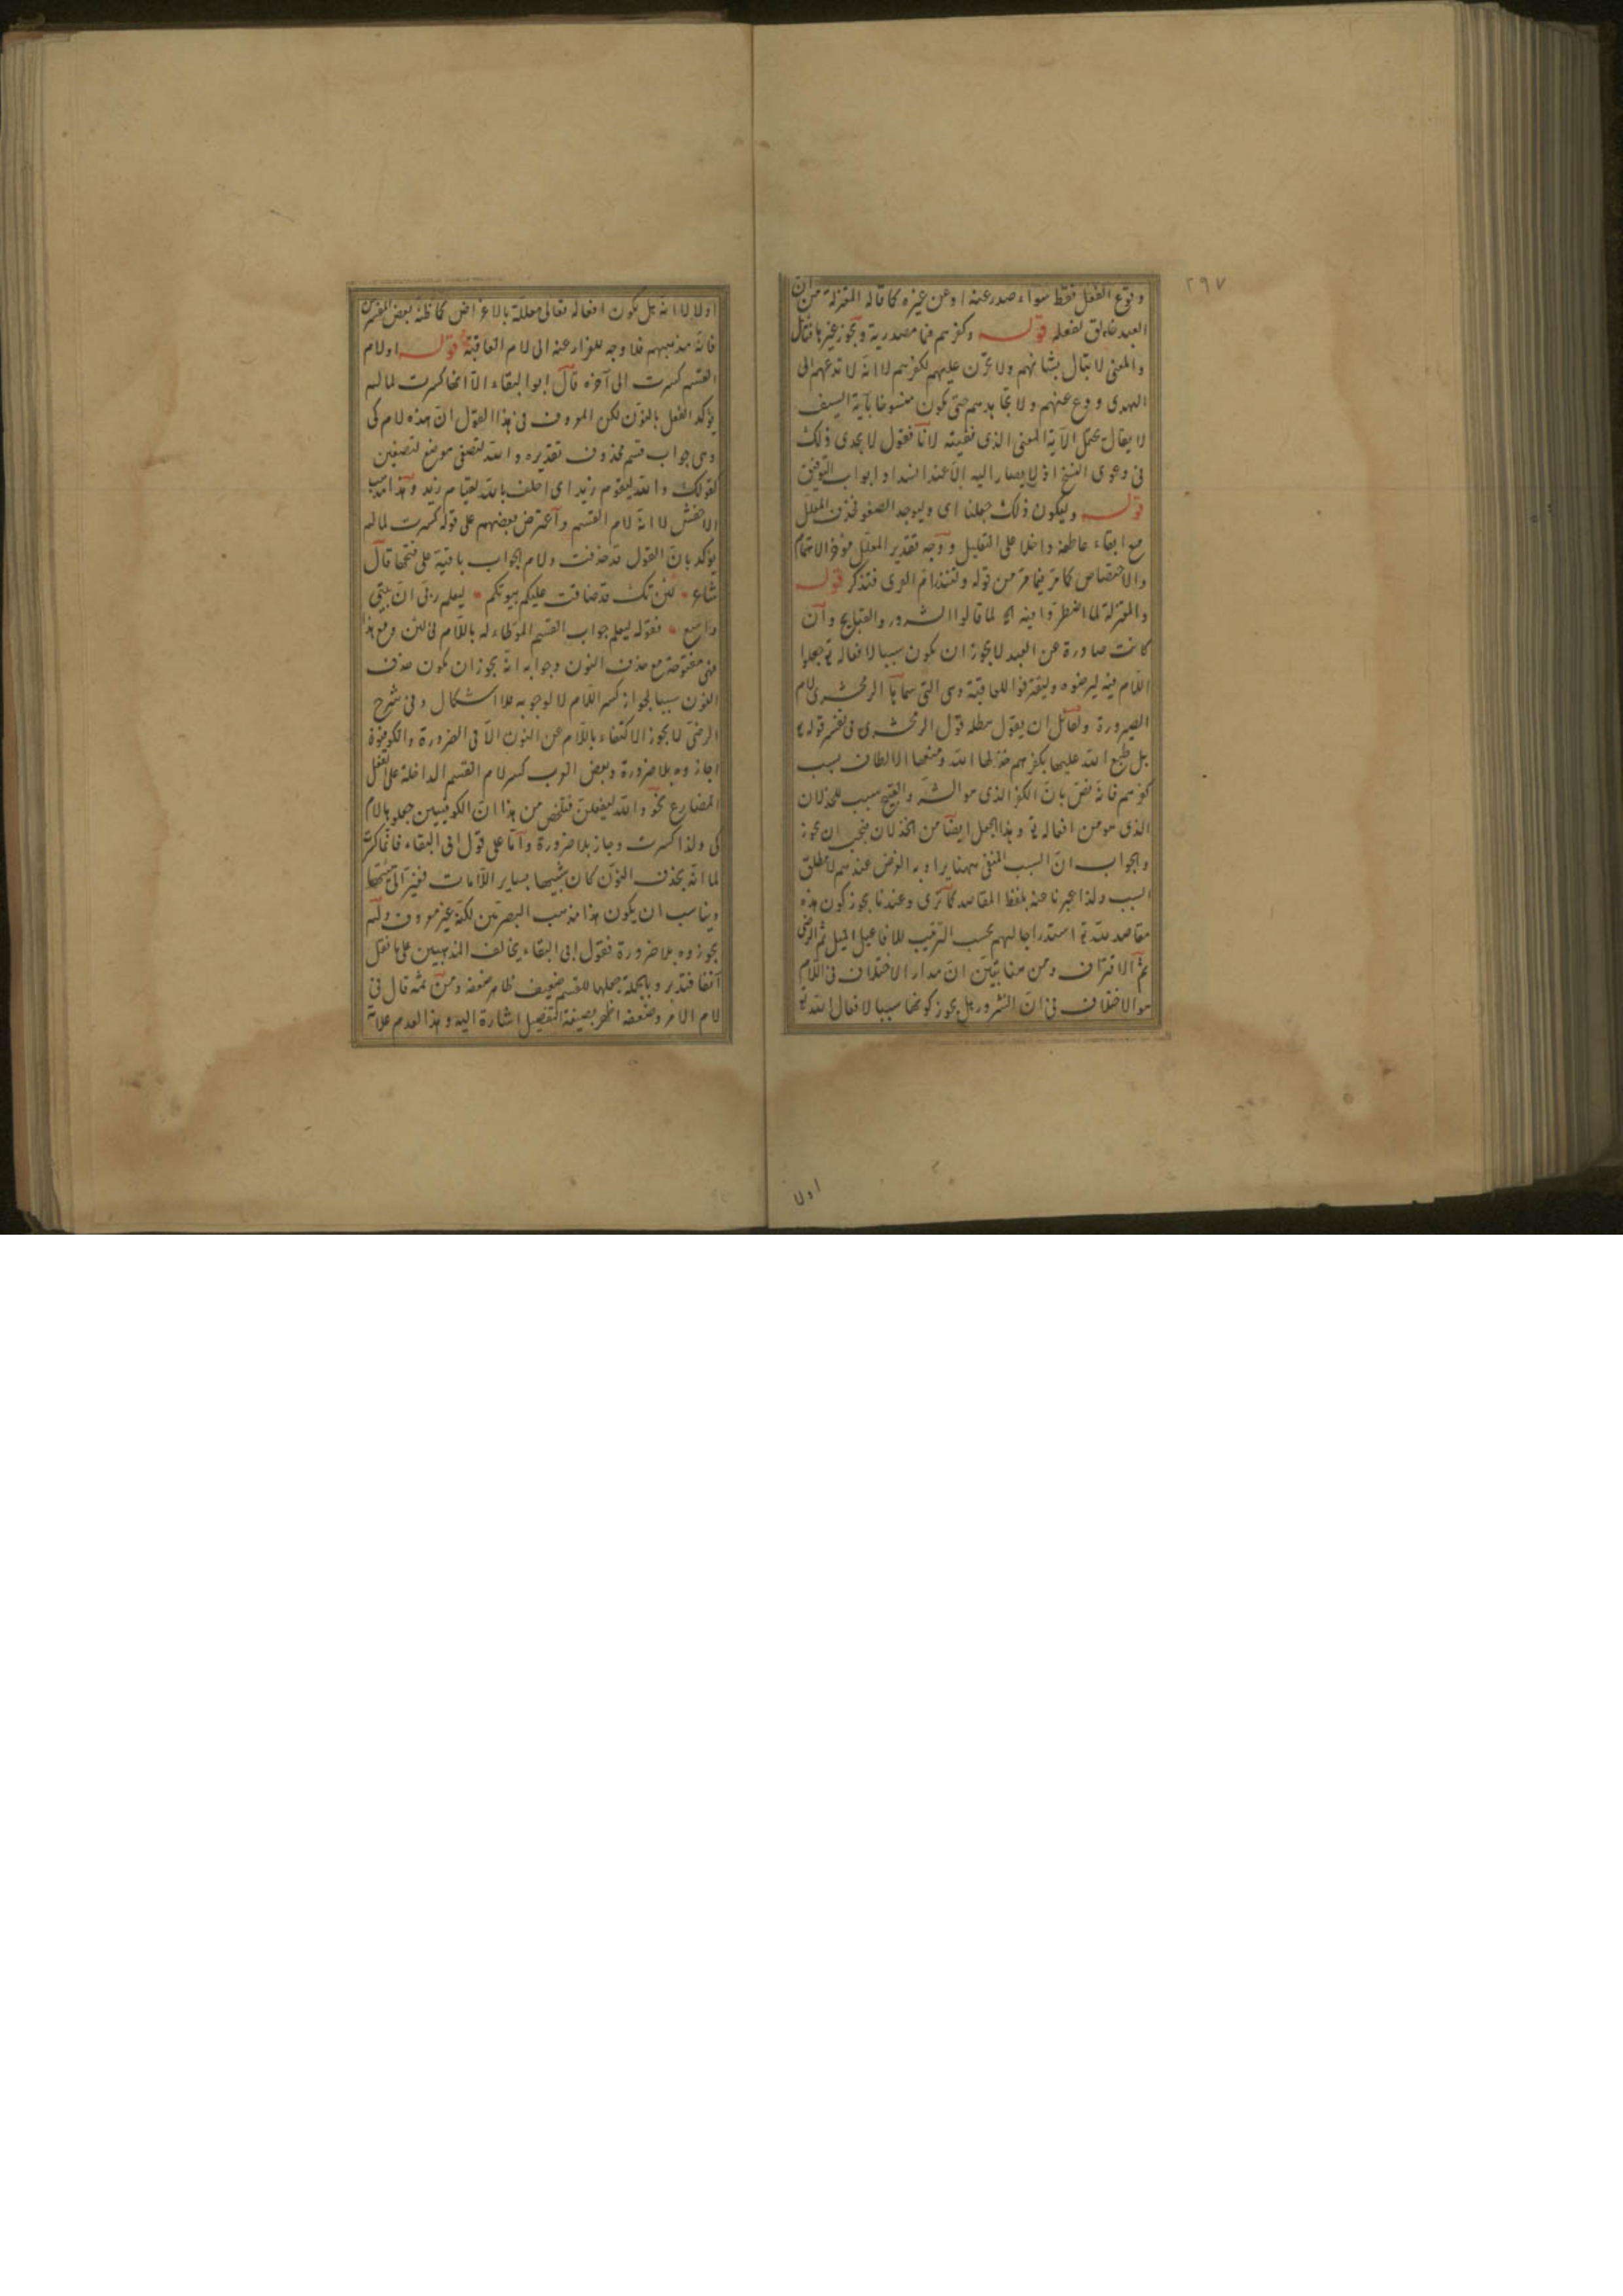 ٢٩٧
وقوع الفعل فقط سواء صدر عنه او عن غيره كما قاله المعتزلة من ان
العبد خالق لفعله قوله وكفرهم فما مصدرية ويجوز غيرها فتأمل
والمعنى لا تبال بشانهم ولا تحزن عليهم لكفرهم لا انه لا تدعهم الى
الهدى ودع عنهم ولا تجاهدهم حتى يكون منسوخا بآية السيف
لا يقال يحتمل الآية المعنى الذى نفيته لانا نقول لا يجدى ذلك
فى دعوى النسخ اذ لا يصار اليه الا عند انسداد ابواب التوفيق
قوله وليكون ذلك جعلنا اى وليوجد الصغو فحذف المعلل
مع ابقاء عاطفه داخلا على التعليل ووجه تقدير المعلل مؤخر الاهتمام
والاختصاص كما مر فيما مر من قوله ولتنذر ام القرى فتذكر قوله
والمعتزلة لما اضطروا فيه الخ لما قالوا الشرور والقبايح وان
كانت صادرة عن العبد لا يجوز ان يكون سببا لافعاله تع جعلوا
اللام فيه ليرضوه وليقترفوا للعاقبة وهى التى سماها الزمخشرى لام
الصيرورة ولقائل ان يقول يبطله قول الزمخشرى فى تفسير قوله تع
بل طبع الله عليها بكفرهم خذلها الله ومنعها الالطاف بسبب
كفرهم فانه نص بان الكفر الذى هو الشر والقبيح سبب للخذلان
الذى هو من افعاله تع وهذا الجعل ايضا من الخذلان فيجب ان يجوز
والجواب ان السبب المنفى ههنا يراد به الغرض عندهم لا مطلق
السبب ولذا عبرنا عنه بلفظ المقاصد كما ترى وعندنا يجوز كون هذه
مقاصد لله تع استدراجا لهم بحسب الترتيب للافاعيل الميل ثم الرضى
ثم الاقتراف ومن هنا يتبين ان مدار الاختلاف فى اللام
هو الاختلاف فى ان الشرور هل يجوز كونها سببا لافعال الله تع
اولا
اولا لا انه هل يكون افعاله تعالى معللة بالاغراض كما ظنه بعض المفسرين
فانه مذهبهم فلا وجه للفرار عنه الى لام العاقبة قوله او لام
القسم كسرت الى آخره قال ابو البقاء الا انها كسرت لما لم
يؤكد الفعل بالنون لكن المعروف فى هذا القول ان هذه لام كى
وهى جواب قسم محذوف تقديره والله لتصغى موضع لتصغين
كقولك والله ليقوم زيد اى احلف بالله لقيام زيد وهذا مذهب
الاخفش لا انه لام القسم واعترض بعضهم على قوله كسرت لما لم
يؤكد بان النون قد حذفت ولام الجواب باقية على فتحها قال
شاعر لئن تك قد ضاقت عليكم بيوتكم ليعلم ربى ان بيتى
واسع فقوله ليعلم جواب القسم الموطاء له باللام فى لئن ومع هذا
فهى مفتوحة مع حذف النون وجوابه انه يجوز ان يكون حذف
النون سببا لجواز كسر اللام لا لوجوبه فلا اشكال وفى شرح
الرضى لا يجوز الاكتفاء باللام عن النون الا فى الضرورة والكوفية
اجازوه بلا ضرورة وبعض العرب كسر لام القسم الداخلة على الفعل
المضارع نحو والله ليفعلن فتلخص من هذا ان الكوفيين جعلوها لام
كى ولذا كسرت وجاز بلا ضرورة واما على قول ابى البقاء فانما كسرت
لما انه بحذف النون كان شبيها بساير اللامات
ويناسب ان يكون هذا مذهب البصريين لكنه غير معروف ولم
يجوزوه بلا ضرورة فقول ابى البقاء يخالف المذهبين على ما نقل
آنفا فتدبر وبالجملة جعلها للقسم ضعيف ظاهر ضعفه ومن ثمه قال فى
لام الامر وضعفه اظهر بصيغة التفضيل اشارة اليه وهذا لعدم علامة